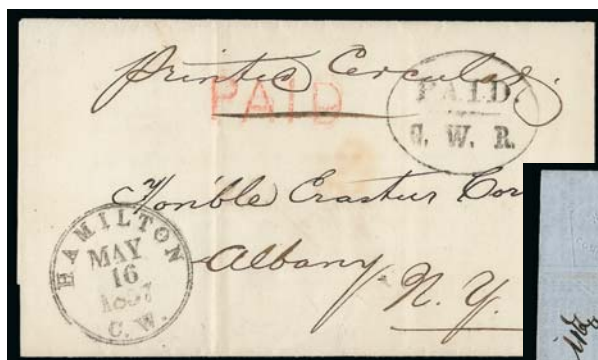 Printed Circular.
PAID
PAID
G. W. R.
Honible Erastus Cor
Albany
N. Y.
HAMILTON
MAY
16
1857
C. W.